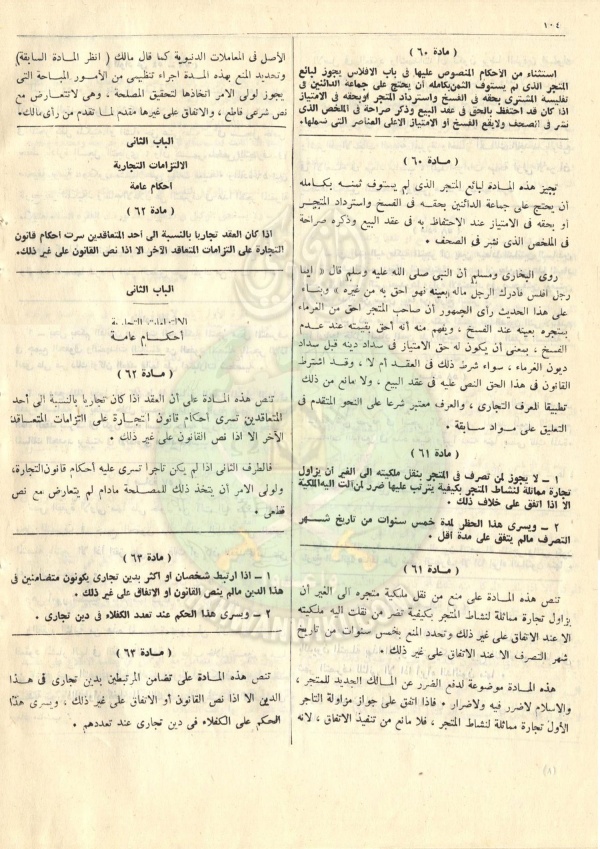 ١٠٤
( مادة ٦٠ )
استثناء من الأحكام المنصوص عليها فى باب الافلاس يجوز لبائع
المتجر الذى لم يستوف الثمن بكامله أن يحتج على جماعة الدائنين فى
تفليسة المشترى بحقه فى الفسخ واسترداد المتجر أو بحقه فى الامتياز
اذا كان قد احتفظ بالحق فى عقد البيع وذكر صراحة فى الملخص الذى
نشر فى الصحف ولايقع الفسخ او الامتياز الا على العناصر التى تشملها.
( مادة ٦٠ )
تجيز هذه المادة لبائع المتجر الذى لم يستوف ثمنه بكامله
أن يحتج على جماعة الدائنين بحقه فى الفسخ واسترداد المتجر
او بحقه فى الامتياز عند الاحتفاظ به فى عقد البيع وذكره صراحة
فى الملخص الذى نشر فى الصحف .
روى البخارى ومسلم أن النبى صلى الله عليه وسلم قال « ايما
رجل افلس فأدرك الرجل ماله بعينه فهو احق به من غيره » وبناء
على هذا الحديث رأى الجمهور أن صاحب المتجر احق من الغرماء
بمتجره بعينه عند الفسخ ، ويفهم منه أنه أحق بقيمته عند عدم
الفسخ ، بمعنى أن يكون له حق الامتياز فى سداد دينه قبل سداد
ديون الغرماء ، سواء شرط ذلك فى العقد أم لا ، وقد اشترط
القانون فى هذا الحق النص عليه فى عقد البيع ، ولا مانع من ذلك
تطبيقا للعرف التجارى ، والعرف معتبر شرعا على النحو المتقدم فى
التعليق على مواد سابقة .
( مادة ٦١ )
١ – لا يجوز لمن تصرف فى المتجر بنقل ملكيته الى الغير أن يزاول
تجارة مماثلة لنشاط المتجر بكيفية يترتب عليها ضرر لمن آلت اليه الملكية
الا اذا اتفق على خلاف ذلك .
٢ – ويسرى هذا الحظر لمدة خمس سنوات من تاريخ شهر
التصرف مالم يتفق على مدة أقل .
( مادة ٦١ )
تنص هذه المادة على منع من نقل ملكية متجره الى الغير أن
يزاول تجارة مماثلة لنشاط المتجر بكيفية تضر من نقلت اليه ملكيته
الا عند الاتفاق على غير ذلك وتحدد المنع بخمس سنوات من تاريخ
شهر التصرف الا عند الاتفاق على غير ذلك .
هذه المادة موضوعة لدفع الضرر عن المالك الجديد للمتجر ،
والاسلام لاضرر فيه ولاضرار . فاذا اتفق على جواز مزاولة التاجر
الأول تجارة مماثلة لنشاط المتجر ، فلا مانع من تنفيذ الاتفاق ، لانه
الأصل فى المعاملات الدنيوية كما قال مالك ( انظر المادة السابقة)
وتحديد المنع بهذه المدة اجراء تنظيمى من الأمور المباحة التى
يجوز لولى الامر اتخاذها لتحقيق المصلحة ، وهى لاتتعارض مع
نص شرعى قاطع ، والاتفاق على غيرها مقدم لما تقدم من رأى مالك.
الباب الثانى
الالتزامات التجارية
احكام عامة
( مادة ٦٢ )
اذا كان العقد تجاريا بالنسبة الى أحد المتعاقدين سرت احكام قانون
التجارة على التزامات المتعاقد الآخر الا اذا نص القانون على غير ذلك.
الباب الثانى
الالتزامات التجارية
أحكام عامة
( مادة ٦٢ )
تنص هذه المادة على أن العقد اذا كان تجاريا بالنسبة الى أحد
المتعاقدين تسرى أحكام قانون التجارة على التزامات المتعاقد
الآخر الا اذا نص القانون على غير ذلك .
فالطرف الثانى اذا لم يكن تاجرا تسرى عليه أحكام قانون التجارة،
ولولى الامر أن يتخذ ذلك للمصلحة مادام لم يتعارض مع نص
قطعى .
( مادة ٦٣ )
١ – اذا ارتبط شخصان او اكثر بدين تجارى يكونون متضامنين فى
هذا الدين مالم ينص القانون او الاتفاق على غير ذلك .
٢ – ويسرى هذا الحكم عند تعدد الكفلاء فى دين تجارى .
( مادة ٦٣ )
تنص هذه المادة على تضامن المرتبطين بدين تجارى فى هذا
الدين الا اذا نص القانون أو الاتفاق على غير ذلك ، ويسرى هذا
الحكم على الكفلاء فى دين تجارى عند تعددهم .
(٨)